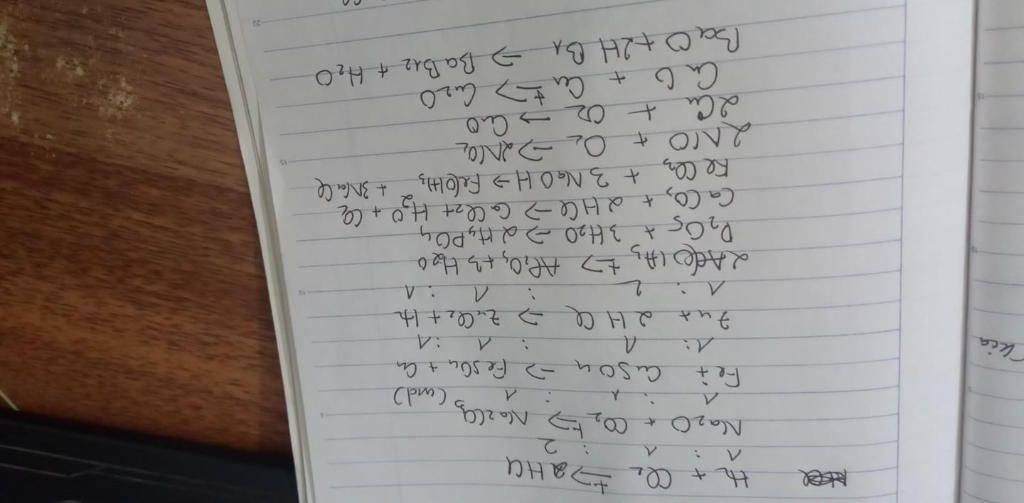 H2 + Cl2 t=> 2HCl
1 : 1 : 2
Na2O + CO2 t=> Na2CO3
1 : 1 : 1
Fe + CuSO4 => FeSO4 + Cu
1 : 1 : 1 : 1
Zn + 2HCl => ZnCl2 + H2
1 : 2 : 1 : 1
2Al(OH)3 t=> Al2O3 + 3H2O
P2O5 + 3H2O => 2H3PO4
CaCO3 + 2HCl => CaCl2 + H2O + CO2
FeCl3 + 3NaOH => Fe(OH)3 + 3NaCl
2NO + O2 => 2NO2
2Cu + O2 => CuO
CuO + Cu t=> Cu2O
BaO + 2HBr => BaBr2 + H2O